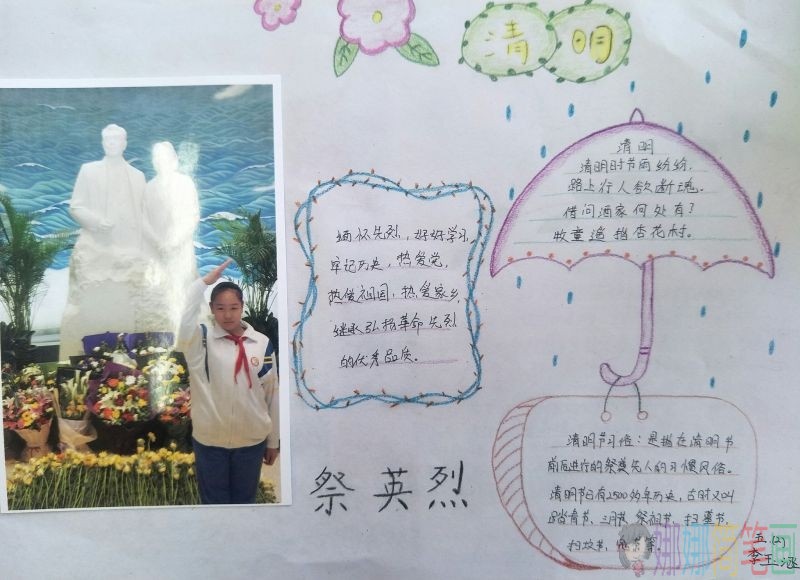 清明
清明
清明时节雨纷纷,
路上行人欲断魂。
借问酒家何处有?
牧童遥指杏花村。
缅怀先烈,好好学习,
牢记历史,热爱党,
热爱祖国,热爱家乡,
继承弘扬革命先烈
的优秀品质。
祭英烈
清明节习俗:是指在清明节
前后进行的祭奠先人的习惯风俗。
清明节已有2500多年历史,古时又叫
踏青节、三月节、祭祖节、扫墓节、
扫坟节、
五(2)
李玉涵
娜娜 笔画